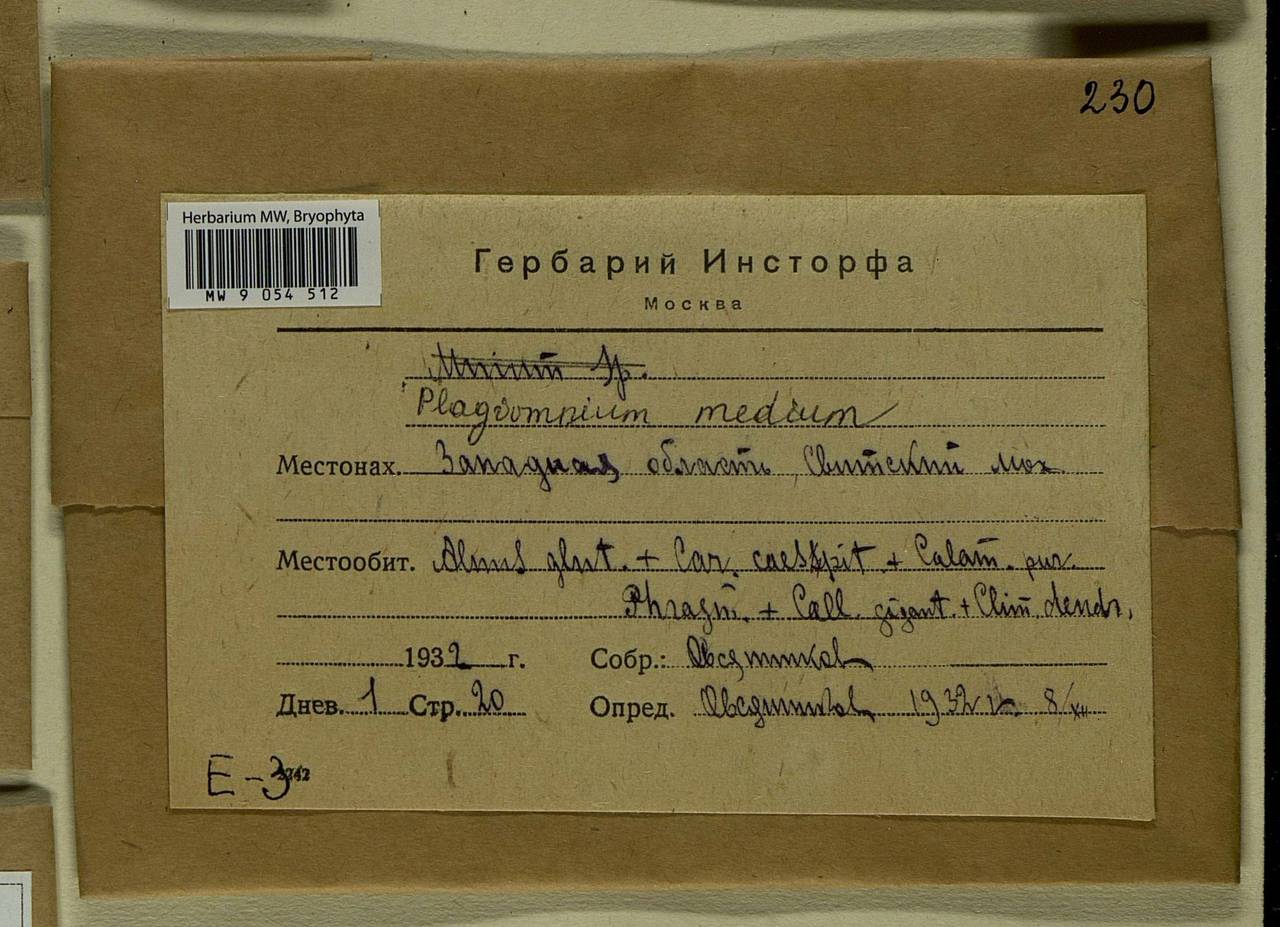 230
Herbarium MW, Bryophyta
MW 9 054 512
Гербарий Инсторфа
Москва
Mnium sp.
Plagiomnium medium
Местонах. Западная область, Свитский мох
Местообит. Alnus glut. + Car. caespit. + Calam. pur.
Phragm. + Call. gigant. + Clim. dendr.
1932 г. Собр.: Овсянников
Днев. 1 Стр. 20 Опред. Овсянников 1932 г. 8/XII
E-3